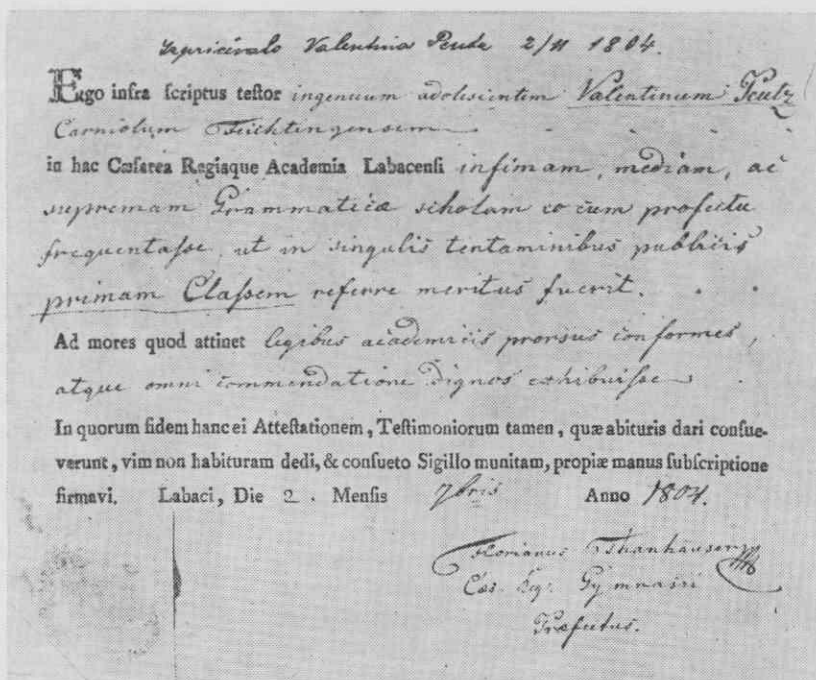 Izpričevalo Valentina Peuta 2/11 1804.
Ego infra ſcriptus teſtor ingenuum adolescentem Valentinum Peutz
Carniolum Feichtingensem
in hac Cæſarea Regiaque Academia Labacenſi infimam, mediam, ac
supremam Grammaticæ scholam eo cum profectu
frequentaſse, ut in singulis tentaminibus publicis
primam Claſsem referre meritus fuerit.
Ad mores quod attinet legibus academicis prorsus conformes,
atque omni commendatione dignos exhibuiſse
In quorum fidem hanc ei Atteſtationem, Teſtimoniorum tamen, quæ abituris dari conſue-
verunt, vim non habituram dedi, & conſueto Sigillo munitam, propiæ manus ſubſcriptione
firmavi. Labaci, Die 2. Menſis 7bris Anno 1804.
Florianus Thanhauser
Cæs. Reg. Gymnasii
Præfectus.